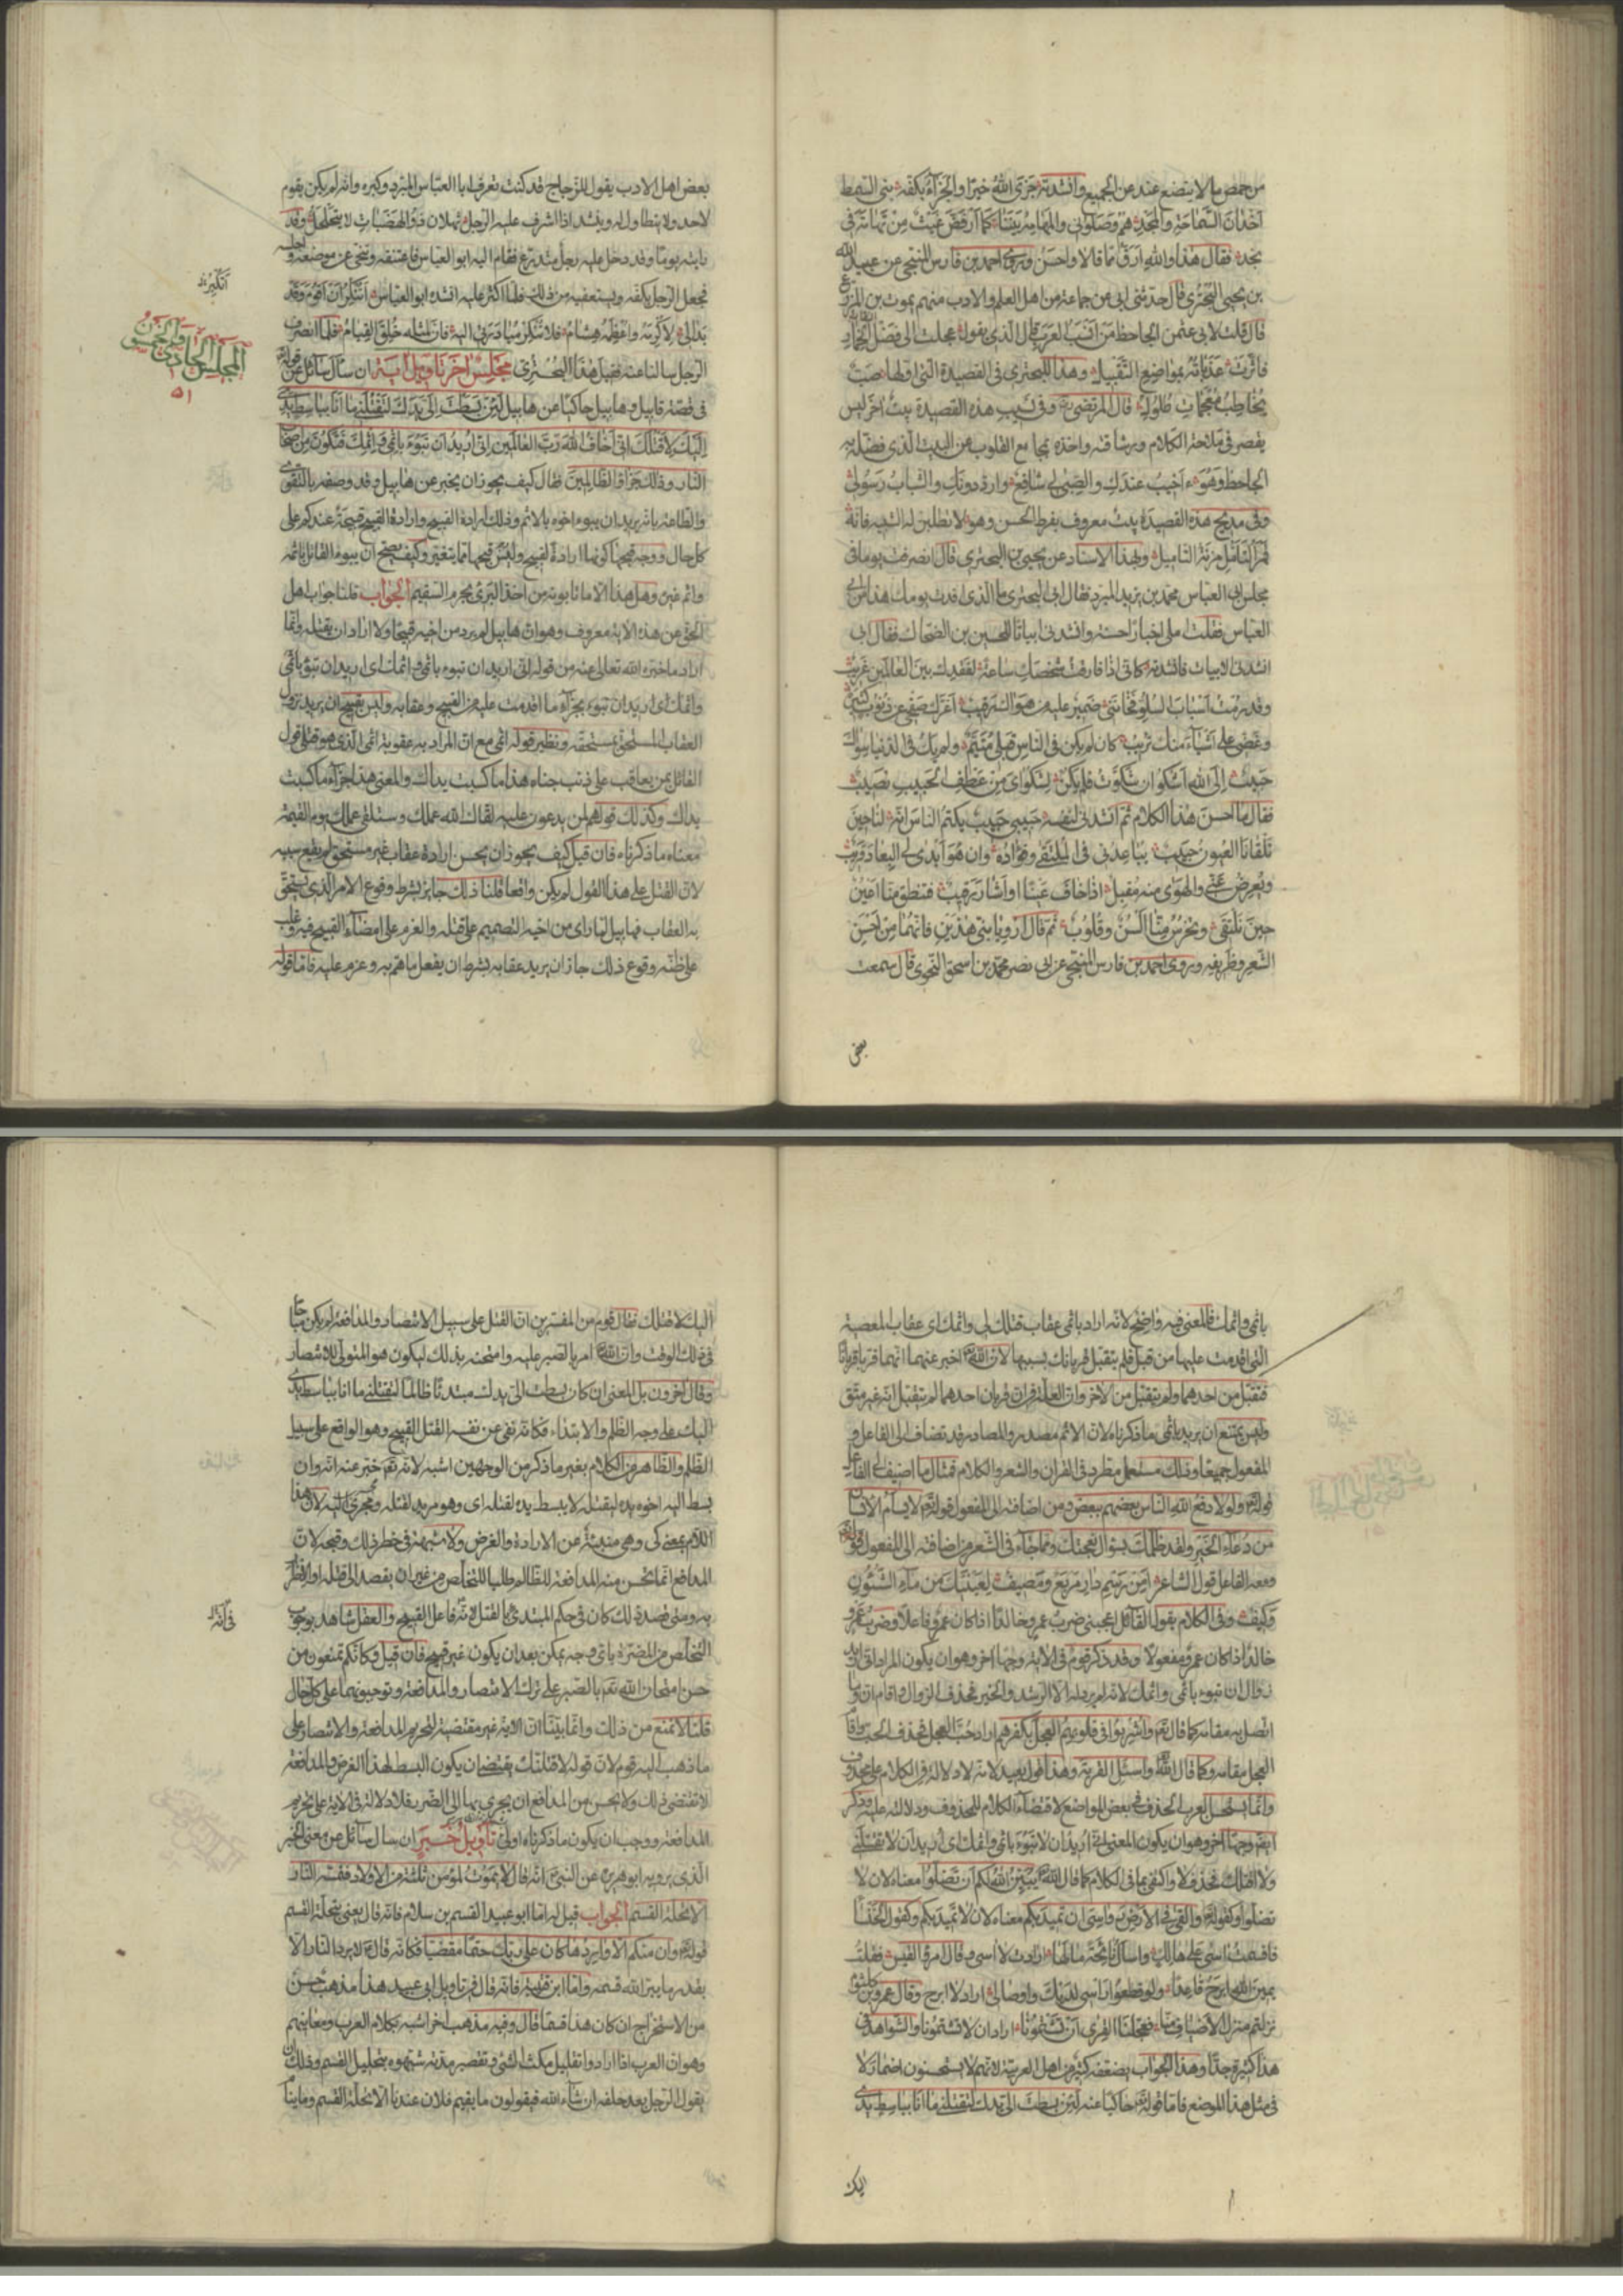 من حمص ما لا يتضع عند عن الجميع وانشدته جزى الله خيرا والجزاء بكفه بني السمط
اخدان السماحة والمجد هم وصلوني والمهامه بيننا كما ارفض غيث من تهامة في
نجد فقال هذا والله ارق مما قالا واحسن وروى احمد بن فارس المنبجي عن عبيد الله
بن يحيى البحتري قال حدثني ابي عن جماعة من اهل العلم والادب منهم يموت بن المزرع
قال قلت لابي عثمن الجاحظ من انسب العرب قال الذي يقول عجلت الى فضل الخمار
فاثرت عذباته بمواضع التقبيل وهذا للبحتري في القصيدة التي اولها صب
يخاطب مفحمات طلول قال المرتضى ره وفي نسيب هذه القصيدة بيت اخر ليس
يقصر في ملاحة الكلام ورشاقته واخذه بمجامع القلوب عن البيت الذي فضله به
الجاحظ وهو ءاخيب عندك والصبى لي شافع وارد دونك والشباب رسولي
وفي مديح هذه القصيدة بيت معروف بفرط الحسن وهو لا تطلبن له الشبيه فانه
قمر التامل مزنة التاميل وبهذا الاسناد عن يحيى بن البحتري قال انصرفت يوما من
مجلس ابي العباس محمد بن يزيد المبرد فقال ابي البحتري ما الذي افدت يومك هذا من ابي
العباس فقلت املى اخبارا حسنة وانشدني ابياتا للحسين بن الضحاك فقال ابي
انشدني الابيات فانشدته كاني اذا فارقت شخصك ساعة لفقدك بين العالمين غريب
وقد رمت اسباب السلو فخانني ضمير عليه من هواك رقيب اغرك صفحي عن ذنوب كثيرة
وغضي على اشياء منك تريب كان لم يكن في الناس قبلي متيم ولم يك في الدنيا سواك
حبيب الى الله اشكو ان شكوت فلم يكن لشكواي من عطف الحبيب نصيب
فقال ما احسن هذا الكلام ثم انشدني لنفسه حبيبي حبيب يكتم الناس انه لنا حين
تلقانا العيون حبيب يباعدني في الملتقى وفؤاده وان هو ابدى لي البعاد قريب
ويعرض عني والهوى منه مقبل اذا خاف عينا او اشار رقيب فتنطق منا اعين
حين نلتقي وتخرس منا السن وقلوب ثم قال ارو يا بني هذين فانهما من احسن
الشعر وظريفه وروى احمد بن فارس المنبجي عن ابي نصر محمد بن اسحق النحوي قال سمعت
بعض
بعض اهل الادب يقول للزجاج قد كنت تعرف ابا العباس المبرد وكبره وانه لم يكن يقوم
لاحد ولا يتطاول له وينشد اذا اشرف عليه الرجل ثهلان ذو الهضبات لا يتحلحل وقد
رايته يوما وقد دخل عليه رجل متدرع فقام اليه ابو العباس فاعتنقه وتنحى عن موضعه واجلسه
فجعل الرجل يكفه ويستعفيه من ذلك فلما اكثر عليه انشده ابو العباس اتنكر ان اقوم وقد
بدا لي لاكرمه واعظمه هشام فلا تنكر مبادرتي اليه فان لمثله خلق القيام فلما انصرف
الرجل سالنا عنه فقيل هذا البحتري مجلس اخر تاويل اية ان سال سائل عن قوله
في قصة قابيل وهابيل حاكيا عن هابيل لئن بسطت الي يدك لتقتلني ما انا بباسط يدي
اليك لاقتلك اني اخاف الله رب العالمين اني اريد ان تبوء باثمي واثمك فتكون من اصحاب
النار وذلك جزاؤ الظالمين فقال كيف يجوز ان يخبر عن هابيل وقد وصفه بالتقوى
والطاعة بانه يريد ان يبوء اخوه بالاثم وذلك ارادة القبيح وارادة القبيح قبيحة عندكم على
كل حال ووجه قبحها كونها ارادة لقبيح وليس قبحها مما يتغير وكيف يصح ان يبوء القاتل باثمه
واثم غيره وهل هذا الا ما تابونه من اخذ البري بجرم السقيم الجواب قلنا جواب اهل
الحق عن هذه الاية معروف وهو ان هابيل لم يرد من اخيه قبيحا ولا اراد ان يقتله وانما
اراد ما خبره الله تعالى عنه من قوله اني اريد ان تبوء باثمي واثمك اي اريد ان تبوء باثمي
واثمك اي اريد ان تبوء بجزاء ما اقدمت عليه من القبيح وعقابه وليس بقبيح ان يريد نزول
العقاب المستحق بمستحقه ونظير قوله اثمي مع ان المراد به عقوبة اثمي الذي هو قتلي قول
القائل لمن يعاقب على ذنب جناه هذا ما كسبت يداك والمعنى هذا جزاء ما كسبت
يداك وكذلك قولهم لمن يدعون عليه لقاك الله عملك وستلقى عملك يوم القيمة
معناه ما ذكرناه فان قيل كيف يجوز ان يحسن ارادة عقاب غير مستحق لم يقع سببه
لان القتل على هذا القول لم يكن واقعا قلنا ذلك جايز بشرط وقوع الامر الذي يستحق
به العقاب فهابيل لما راى من اخيه التصميم على قتله والعزم على امضاء القبيح فيه وغلب
على ظنه وقوع ذلك جاز ان يريد عقابه بشرط ان يفعل ما هم به وعزم عليه فاما قوله
المجلس الحادي والخمسون
٥١
باثمي واثمك فالمعنى فيه واضح لانه اراد باثمي عقاب قتلك لي واثمك اي عقاب المعصية
التي اقدمت عليها من قبل فلم يتقبل قربانك بسببها لان الله تعالى اخبر عنهما انهما قربا قربانا
فتقبل من احدهما ولم يتقبل من الاخر وان العلة في ان قربان احدهما لم يتقبل انه غير متق
وليس يمتنع ان يريد باثمي ما ذكرناه لان الاثم مصدر والمصادر قد تضاف الى الفاعل و
المفعول جميعا وذلك مستعمل مطرد في القران والشعر والكلام فمثال ما اضيف الى الفاعل
قوله تعالى ولولا دفع الله الناس بعضهم ببعض ومن اضافته الى المفعول قوله تعالى لا يسام الانسان
من دعاء الخير ولقد ظلمك بسؤال نعجتك ومما جاء في الشعر من اضافته الى المفعول
ومعه الفاعل قول الشاعر امن رسم دار مربع ومصيف لعينيك من ماء الشئون
وكيف وفي الكلام يقول القائل اعجبني ضرب عمرو خالدا اذا كان عمرو فاعلا وضرب عمرو
خالد اذا كان عمرو مفعولا وقد ذكر قوم في الاية وجها اخر وهو ان يكون المراد اني اريد
زوال ان تبوء باثمي واثمك لانه لم يرد له الا الرشد والخير فحذف الزوال واقام ان وما
اتصل به مقامه كما قال تعالى واشربوا في قلوبهم العجل بكفرهم اراد حب العجل فحذف الحب واقام
العجل مقامه وكما قال تعالى واسئل القرية وهذا قول بعيد لانه لا دلالة في الكلام على محذوف
وانما يستحسن العرب الحذف في بعض المواضع لاقتضاء الكلام للمحذوف ودلالته عليه وذكر
ايضا وجها اخر وهو ان يكون المعنى اني اريد ان لا تبوء باثمي واثمك اي اريد ان لا تقتلني
ولا اقتلك فحذف لا واكتفى بما في الكلام كما قال تعالى يبين الله لكم ان تضلوا معناه لان لا
تضلوا وكقوله تعالى والقى في الارض رواسي ان تميد بكم معناه لان لا تميد بكم وكقول الخنساء
فاقسمت اسى على هالك واسال نائحة ما لها ارادت لا اسى وقال امرؤ القيس فقلت
يمين الله ابرح قاعدا ولو قطعوا راسي لديك واوصالي اراد لا ابرح وقال عمرو بن كلثوم
نزلتم منزل الاضياف منا فعجلنا القرى ان تشتمونا اراد ان لا تشتمونا والشواهد في
هذا كثيرة جدا وهذا الجواب يضعفه كثير من اهل العربية لانهم لا يستحسنون اضمار لا
في مثل هذا الموضع فاما قوله تعالى حاكيا عنه لئن بسطت الي يدك لتقتلني ما انا بباسط يدي
اليك
اليك لاقتلك فقال قوم من المفسرين ان القتل على سبيل الانتصار والمدافعة لم يكن مباحا
في ذلك الوقت وان الله تعالى امره بالصبر عليه وامتحنه بذلك ليكون هو المتولي للانتصار
وقال اخرون بل المعنى ان كان بسطت الي يدك مبتدئا ظالما لتقتلني ما انا بباسط يدي
اليك على وجه الظلم والابتداء فكانه نفى عن نفسه القتل القبيح وهو الواقع على سبيل
الظلم والظاهر من الكلام بغير ما ذكر من الوجهين اشبه لانه تعالى خبر عنه انه وان
بسط اليه اخوه يده ليقتله لا يبسط يده لقتله اي وهو مريد لقتله ومجري اليه لان هذا
اللام بمعنى كي وهي منبئة عن الارادة والغرض ولا شبهة في حظر ذلك وقبحه لان
المدافع انما تحسن منه المدافعة للظالم طلبا للتخلص من غير ان يقصد الى قتله او الاضرار
به ومتى قصد ذلك كان في حكم المبتدي بالقتل لانه فاعل القبيح والعقل شاهد بوجوب
التخلص من المضرة باي وجه يمكن بعد ان يكون غير قبيح فان قيل فكانكم تمنعون من
حسن امتحان الله تعالى بالصبر على ترك الانتصار والمدافعة وتوجبونهما على كل حال
قلنا لا نمنع من ذلك وانما بينا ان الاية غير مقتضية لتحريم المدافعة والانتصار على
ما ذهب اليه قوم لان قوله لاقتلك يقتضي ان يكون البسط لهذا الغرض والمدافعة
لا تقتضي ذلك ولا يحسن من المدافع ان يجري بها الى الضرر فلا دلالة في الاية على تحريم
المدافعة ووجب ان يكون ما ذكرناه اولى تاويل خبر ان سال سائل عن معنى الخبر
الذي يرويه ابو هريرة عن النبي انه قال لا يموت لمؤمن ثلثة من الاولاد فتمسه النار
الا تحلة القسم الجواب قيل له اما ابو عبيد القسم بن سلام فانه قال يعني بتحلة القسم
قوله تعالى وان منكم الا واردها كان على ربك حتما مقضيا فكانه قال لا يرد النار الا
بقدر ما يبر الله قسمه واما ابن قتيبة فانه قال في تاويل ابي عبيد هذا مذهب حسن
من الاستخراج ان كان هذا قسما قال وفيه مذهب اخر اشبه بكلام العرب ومعانيهم
وهو ان العرب اذا ارادوا تقليل مكث الشيء وتقصير مدته شبهوه بتحليل القسم وذلك ان
يقول الرجل بعد حلفه ان شاء الله فيقولون ما يقيم فلان عندنا الا تحلة القسم وما ينام